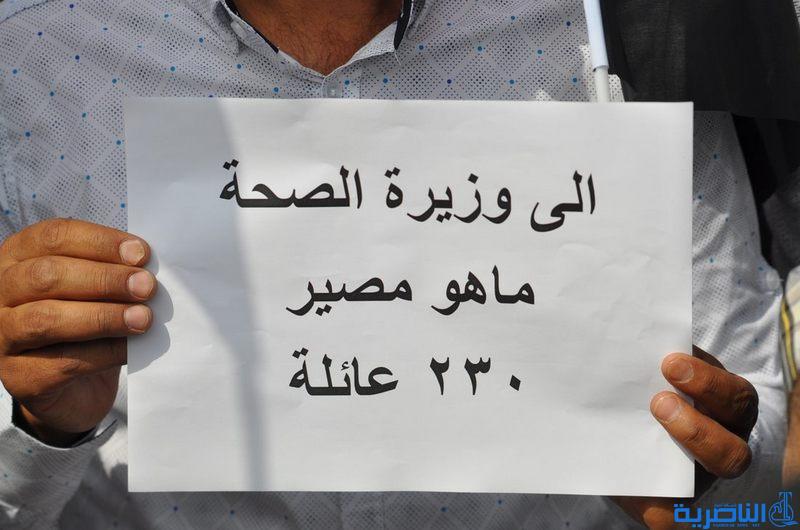 الى وزيرة الصحة
ماهو مصير
٢٣٠ عائلة
الناصرية